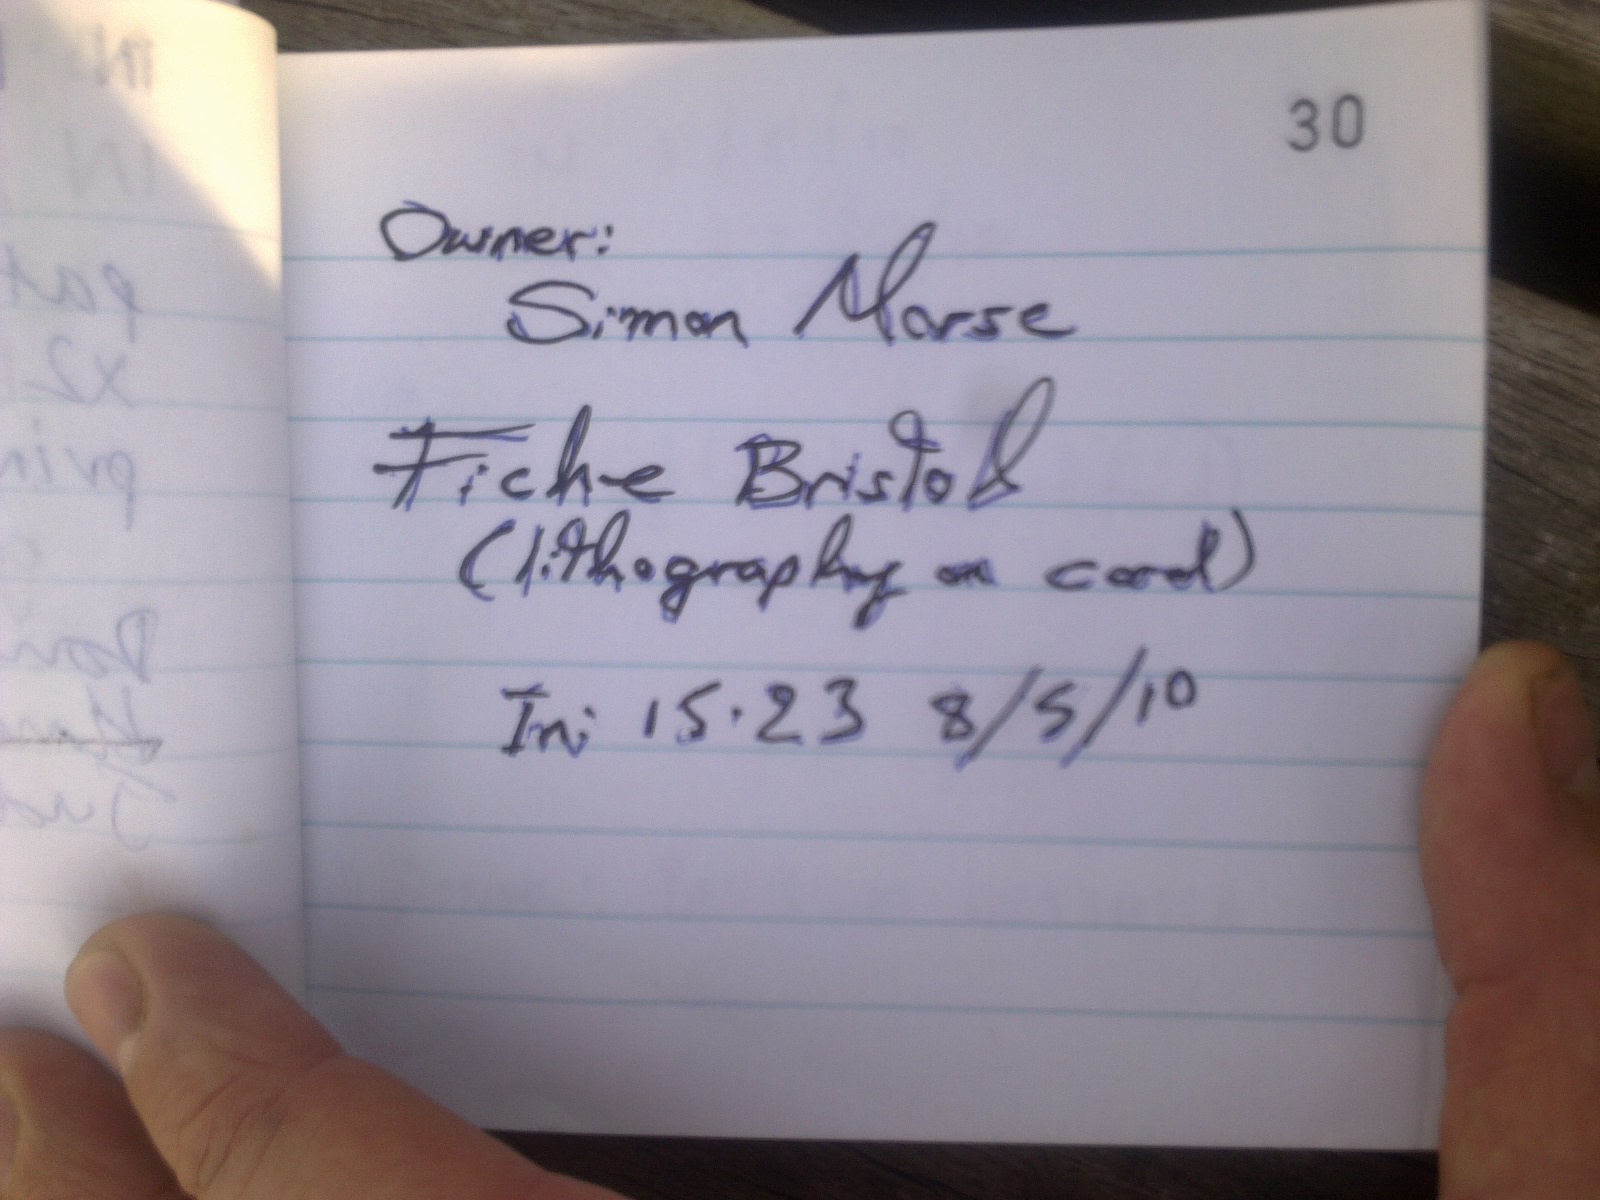 30
Owner:
Simon Morse
Fiche Bristol
(lithography on card)
In: 15.23 8/5/10